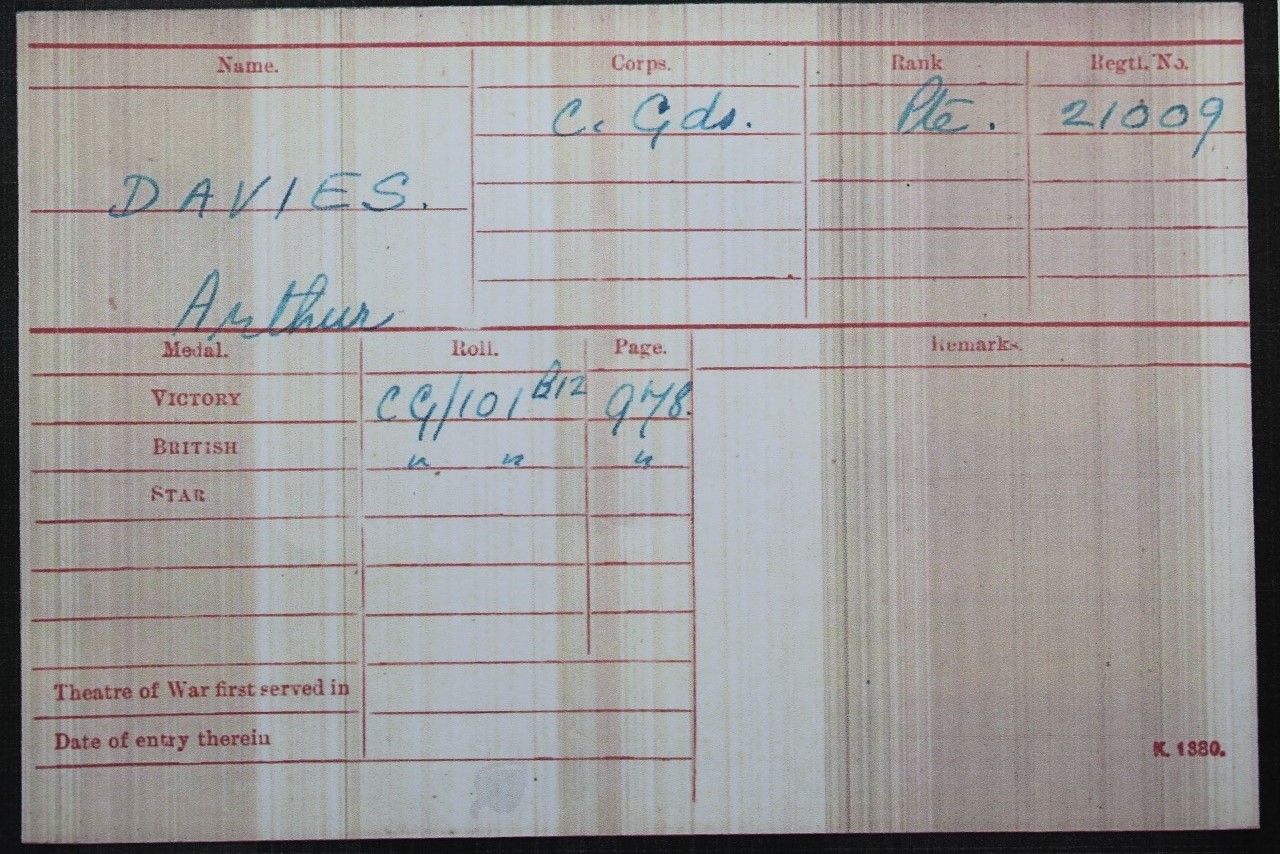 Name. Corps. Rank Regtl. No.
C. Gds. Pte. 21009
DAVIES.
Arthur
Medal. Roll. Page. Remarks.
VICTORY CG/101 B12 978.
BRITISH " " "
STAR
Theatre of War first served in
Date of entry therein
K. 1380.